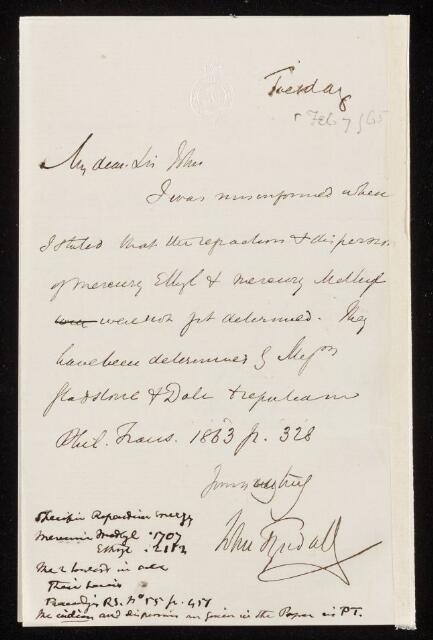 Tuesday
Feb 7 / 65
My dear Sir John
I was misinformed when
I stated that the refraction & dispersion
of mercury Ethyl & mercury Methyl
were not yet determined. They
have been determined by Mess
Gladstone & Dale &
Phil. Trans. 1863 p. 328
Yours
John Tyndall
Specific Refractive Energy
Mercuric Methyl .1707
Ethyl
The 2 lowest in
their
R.S. No 55 p. 457
The indices and dispersion are given in the Paper in P.T.